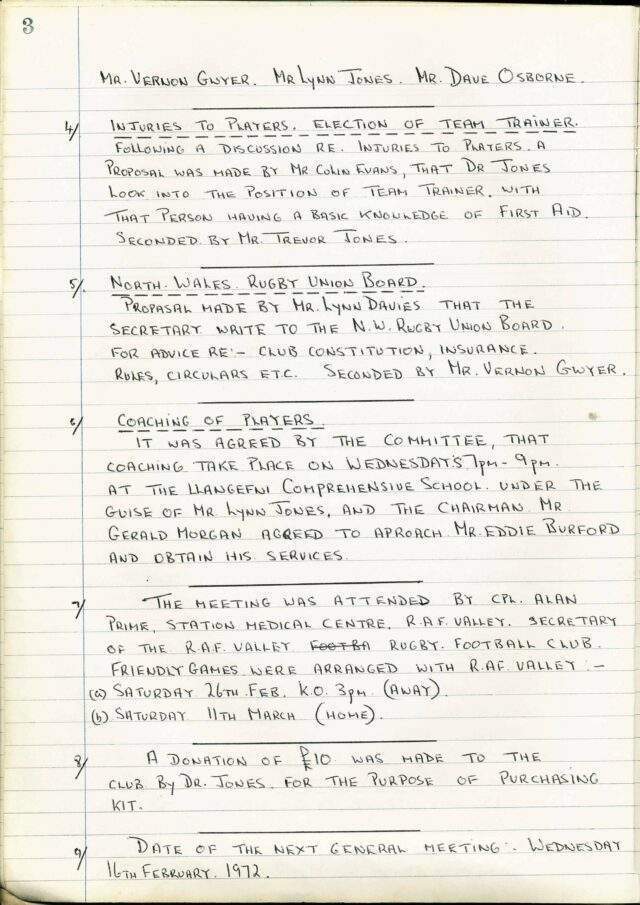 3
MR. VERNON GWYER. MR LYNN JONES. MR. DAVE OSBORNE.
4/ INJURIES TO PLAYERS. ELECTION OF TEAM TRAINER.
FOLLOWING A DISCUSSION RE. INJURIES TO PLAYERS. A
PROPOSAL WAS MADE BY MR COLIN EVANS, THAT DR JONES
LOOK INTO THE POSITION OF TEAM TRAINER, WITH
THAT PERSON HAVING A BASIC KNOWLEDGE OF FIRST AID.
SECONDED BY MR. TREVOR JONES.
5/. NORTH. WALES. RUGBY UNION BOARD.
PROPASAL MADE BY MR. LYNN DAVIES THAT THE
SECRETARY WRITE TO THE N.W. RUGBY UNION BOARD.
FOR ADVICE RE:- CLUB CONSTITUTION, INSURANCE.
RULES, CIRCULARS ETC. SECONDED BY MR. VERNON GWYER.
6/ COACHING OF PLAYERS.
IT WAS AGREED BY THE COMMITTEE, THAT
COACHING TAKE PLACE ON WEDNESDAY'S 7PM - 9PM.
AT THE LLANGEFNI COMPREHENSIVE SCHOOL. UNDER THE
GUISE OF MR LYNN JONES, AND THE CHAIRMAN MR
GERALD MORGAN AGREED TO APROACH MR. EDDIE BURFORD
AND OBTAIN HIS SERVICES.
7/ THE MEETING WAS ATTENDED BY CPL. ALAN
PRIME, STATION MEDICAL CENTRE, R.A.F. VALLEY. SECRETARY
OF THE R.A.F. VALLEY FOOTBA RUGBY. FOOTBALL CLUB.
FRIENDLY GAMES WERE ARRANGED WITH R.A.F. VALLEY :-
(a) SATURDAY 26TH FEB. K.O. 3PM (AWAY).
(b) SATURDAY 11TH MARCH (HOME).
8/ A DONATION OF £10 WAS MADE TO THE
CLUB BY DR. JONES. FOR THE PURPOSE OF PURCHASING
KIT.
9/ DATE OF THE NEXT GENERAL MEETING:. WEDNESDAY
16TH FEBRUARY. 1972.